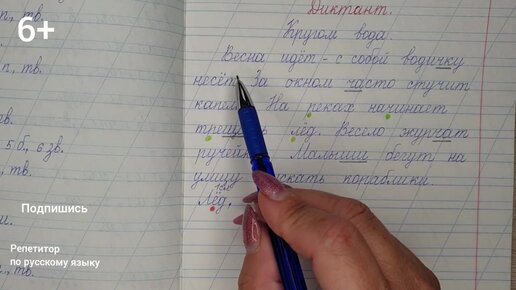 6+
Диктант.
Кругом вода
Весна идёт - с собой водичку
несёт. За окном часто стучит
На реках начинает
лёд. Весело журчат
Малыши бегут на
улицу кораблики.
Лёд.
п, тв.
п, тв.
5 б, 6 зв.
тв.
тв.
Подпишись
Репетитор
по русскому языку